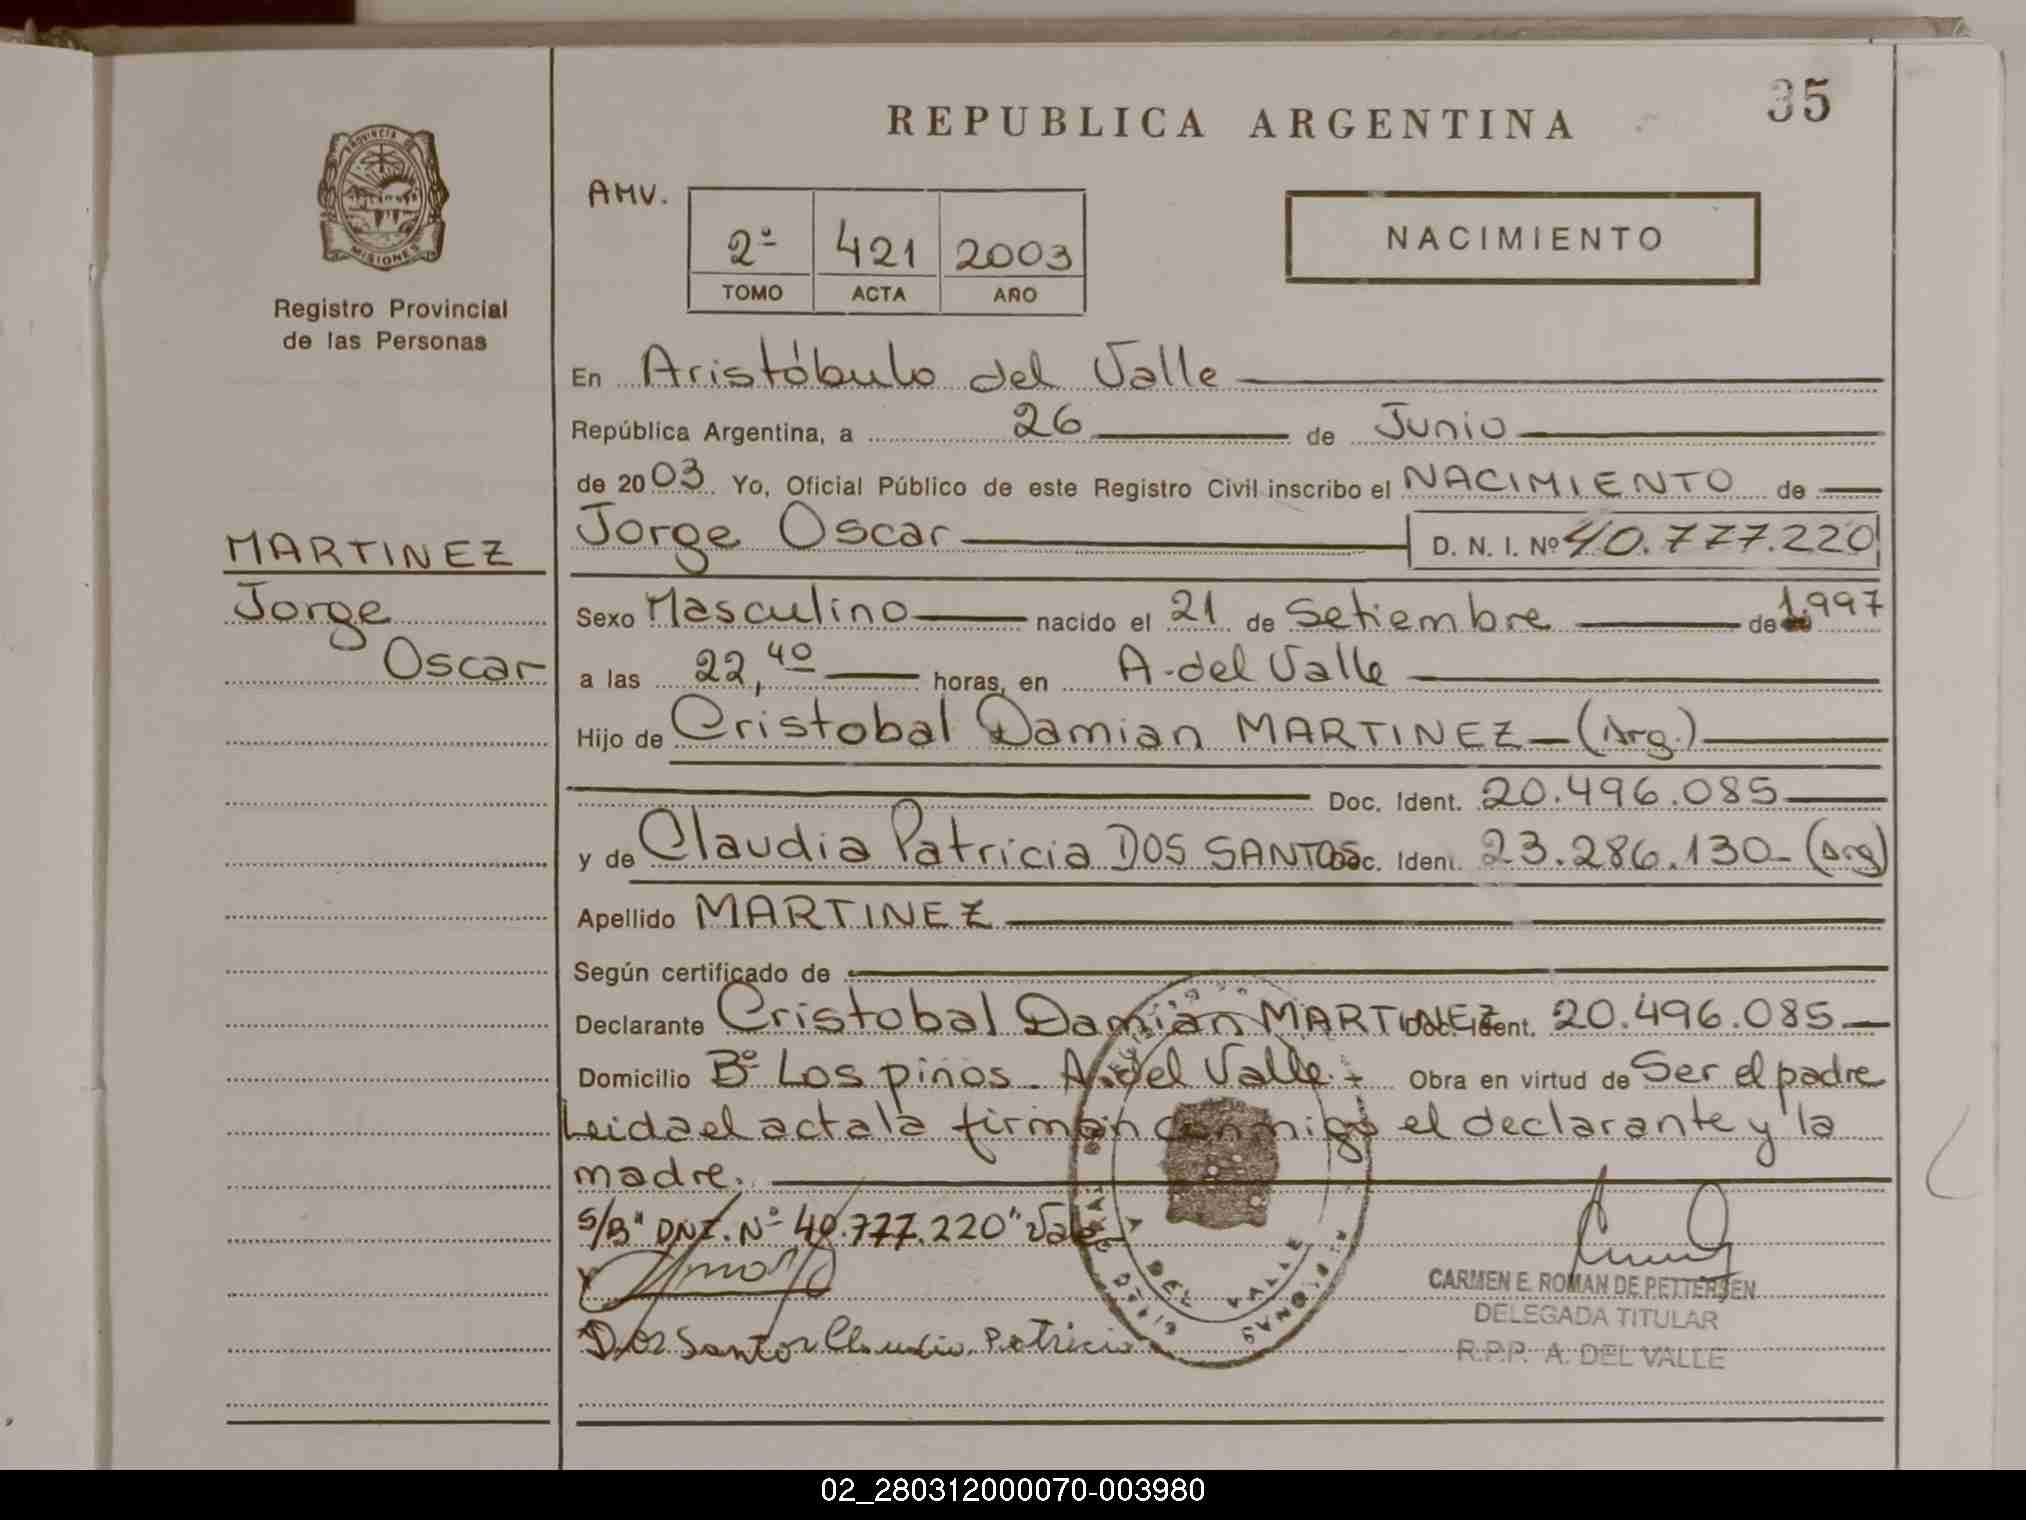 35
REPUBLICA ARGENTINA
PROVINCIA DE
MISIONES
Registro Provincial
de las Personas
AMV.
2º 421 2003
TOMO ACTA AÑO
NACIMIENTO
En Aristóbulo del Valle
República Argentina, a 26 de Junio
de 2003 Yo, Oficial Público de este Registro Civil inscribo el NACIMIENTO de
MARTINEZ
Jorge
Oscar
Jorge Oscar D. N. I. Nº 40.777.220
Sexo Masculino nacido el 21 de Setiembre de 1.997
a las 22,40 horas, en A. del Valle
Hijo de Cristobal Damian MARTINEZ (Arg.)
Doc. Ident. 20.496.085
y de Claudia Patricia DOS SANTOS Doc. Ident. 23.286.130 (Arg)
Apellido MARTINEZ
Según certificado de
Declarante Cristobal Damian MARTINEZ Doc. Ident. 20.496.085
Domicilio Bº Los pinos. A. del Valle. Obra en virtud de Ser el padre
Leida el acta la firman conmigo el declarante y la
madre.
S/B "DNI. Nº 40.777.220" Vale
Dos Santos Claudia Patricia
DEL VALLE
MISIONES
CARMEN E. ROMAN DE PETTERSEN
DELEGADA TITULAR
R.P.P. A. DEL VALLE
02_280312000070-003980